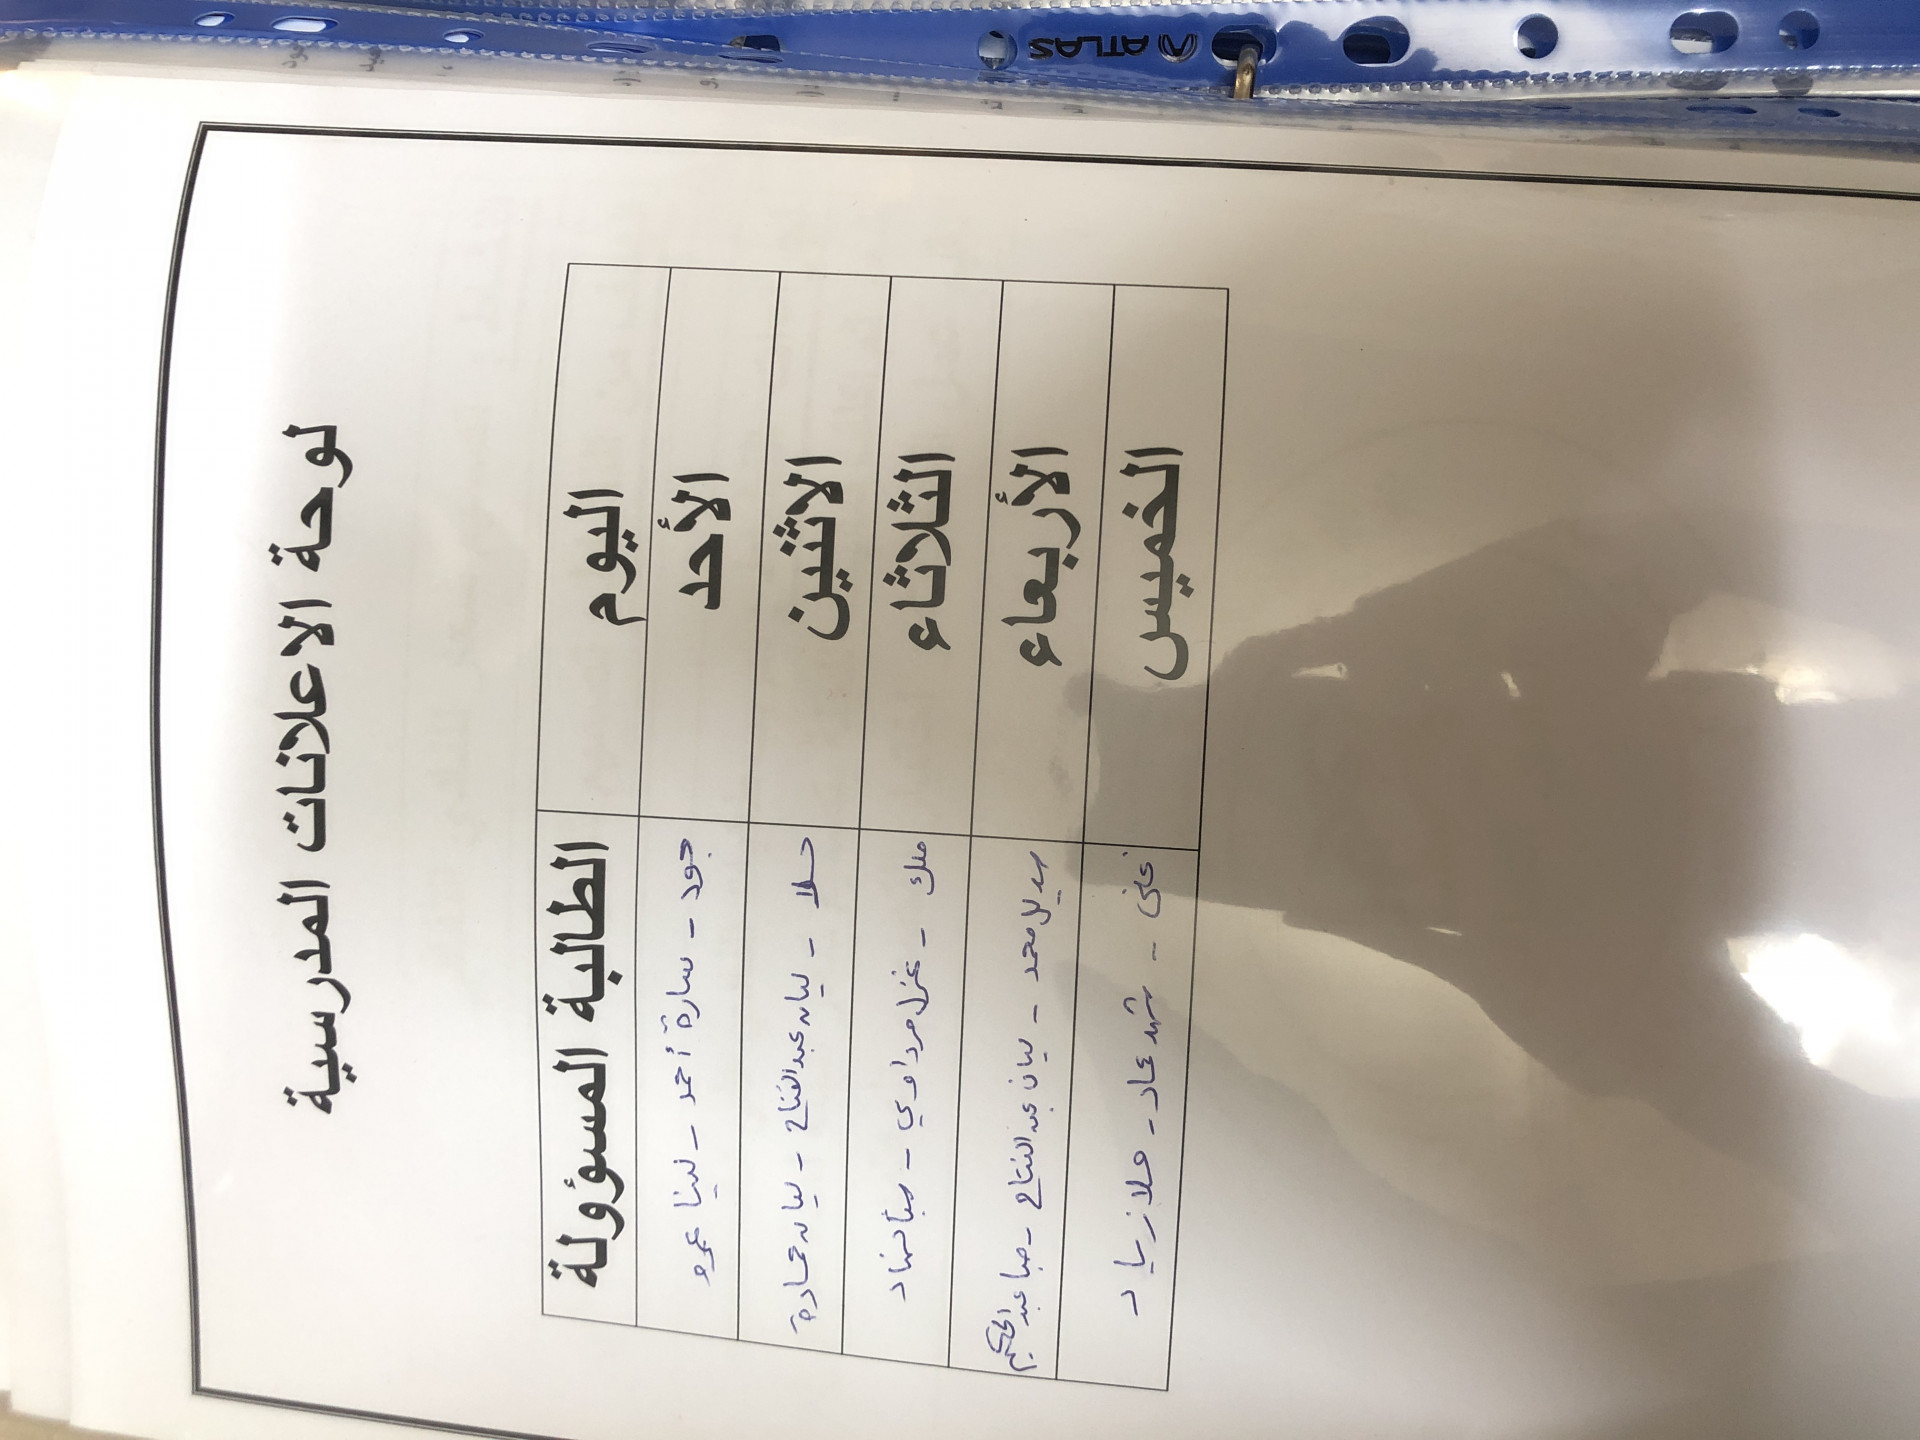 ATLAS
لوحة الاعلانات المدرسية
اليوم الطالبة المسؤولة
الأحد جود - سارة أحمد - لينا عمرو
الاثنين حلا - ليان عبد الفتاح - ليان حمادة
الثلاثاء ملك - غزل مرداوي - صبا نهاد
الأربعاء هديل محمد - ليان عبد الفتاح - صبا عبد الحكيم
الخميس شهد عماد - علا زياد